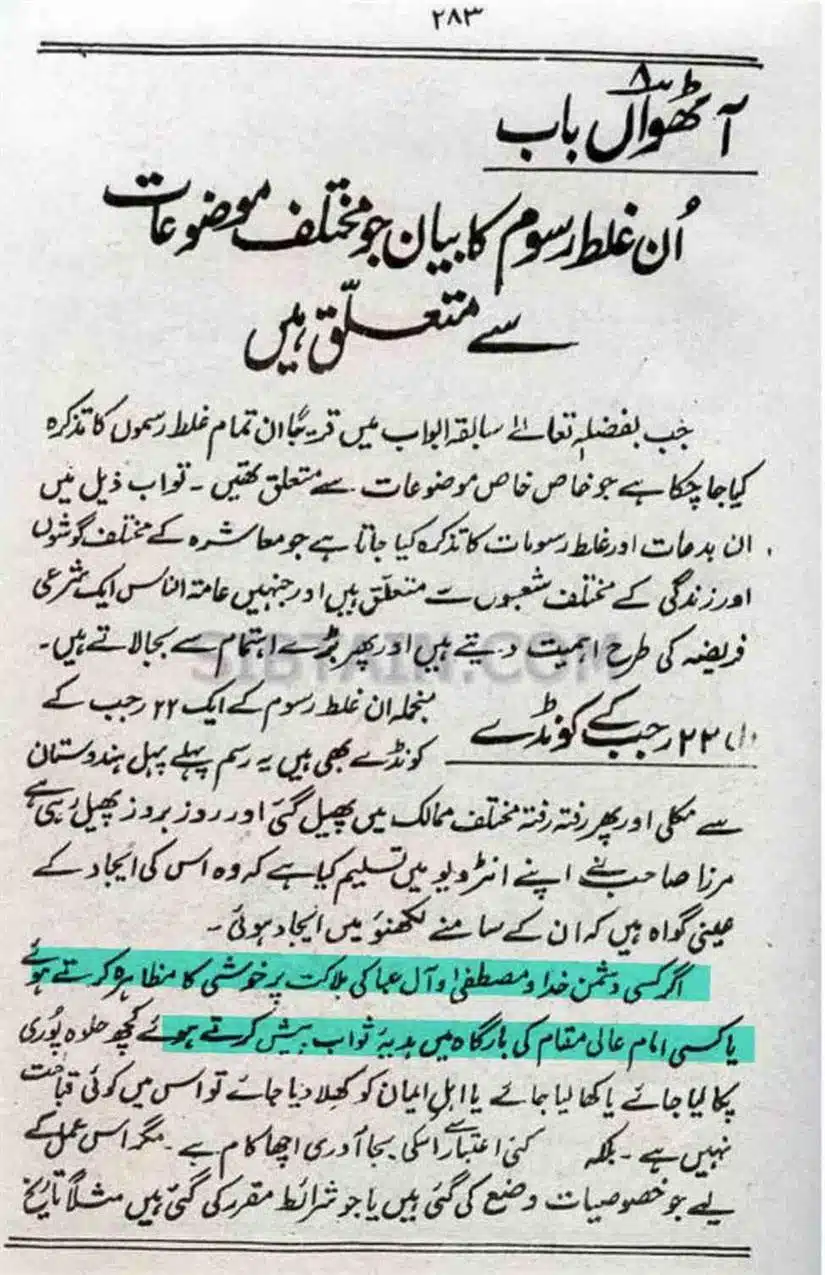 ۲۸۳
۸
آٹھواں باب
اُن غلط رسوم کا بیان جو مختلف موضوعات
سے متعلّق ہیں
جب بفضلہٖ تعالےٰ سابقہ ابواب میں قریباً ان تمام غلط رسموں کا تذکرہ
کیا جا چکا ہے جو خاص خاص موضوعات سے متعلق تھیں ۔ تو اب ذیل میں
ان بدعات اور غلط رسومات کا تذکرہ کیا جاتا ہے جو معاشرہ کے مختلف گوشوں
اور زندگی کے مختلف شعبوں سے متعلّق ہیں اور جنہیں عامۃ الناس ایک شرعی
فریضہ کی طرح اہمیت دیتے ہیں اور پھر بڑے اہتمام سے بجا لاتے ہیں ۔
SIBTAIN.COM
۲۲ رجب کے کونڈے
منجملہ ان غلط رسوم کے ایک ۲۲ رجب کے
کونڈے بھی ہیں یہ رسم پہلے پہل ہندوستان
سے نکلی اور پھر رفتہ رفتہ مختلف ممالک میں پھیل گئی اور روز بروز پھیل رہی ہے
مرزا صاحب نے اپنے انٹرویو میں تسلیم کیا ہے کہ وہ اس کی ایجاد کے
عینی گواہ ہیں کہ ان کے سامنے لکھنؤ میں ایجاد ہوئی ۔
اگر کسی دشمن خدا و مصطفیٰ و آل عبا کی ہلاکت پر خوشی کا مظاہرہ کرتے ہوئے
یا کسی امام عالی مقام کی بارگاہ میں ہدیۂ ثواب پیش کرتے ہوئے کچھ حلوہ پُوری
پکا لیا جائے یا کھا لیا جائے یا اہل ایمان کو کھلا دیا جائے تو اس میں کوئی قباحت
نہیں ہے ۔ بلکہ کئی اعتبار سے اسکی بجا آوری اچھا کام ہے ۔ مگر اس عمل کے
لیے جو خصوصیات وضع کی گئی ہیں یا جو شرائط مقرر کی گئی ہیں مثلاً تاریخ